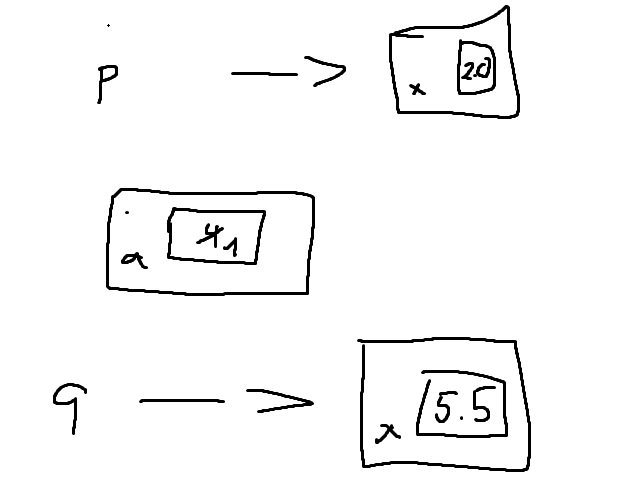 p → x 2.0
a 4 1
q → x 5.5